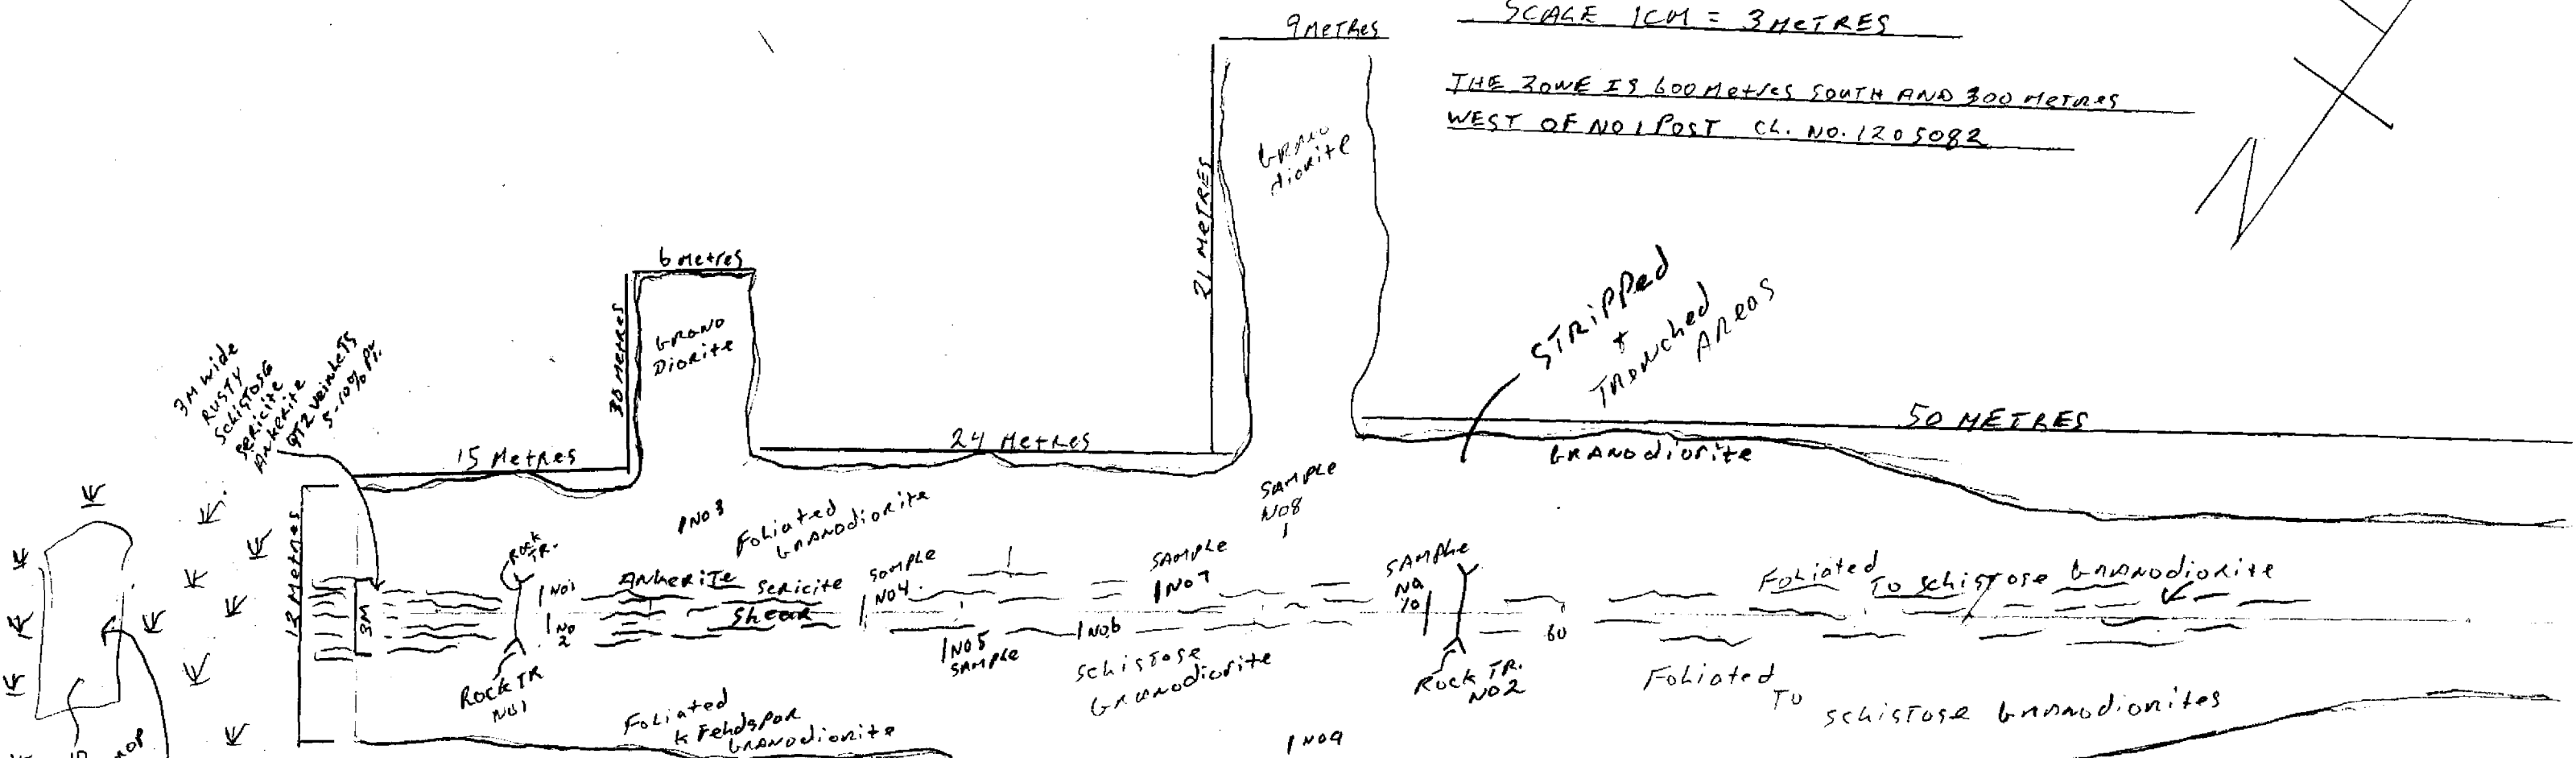 SCALE 1CM = 3 METRES
THE ZONE IS 600 Metres SOUTH AND 300 METRES
WEST OF NO 1 POST CL. NO. 1205082
N
9 Metres
GRANO
diorite
21 METRES
6 Metres
30 METRES
GRANO
DIORITE
STRIPPED
+
TRENCHED
AREAS
3M wide
RUSTY
SCHISTOSE
SERICITE
ANKERITE
QTZ veinlets
5-10% PY.
15 Metres
24 Metres
50 METRES
GRANOdiorite
12 Metres
3M
NO 3
Foliated
GRANODIORITE
SAMPLE
NO8
ROCK
TR.
NO1
ANKERITE SERICITE
SHEAR
NO
2
SAMPLE
NO4
SAMPLE
NO7
SAMPLE
NO
10
Foliated TO SCHISTOSE GRANOdiorite
NO5
SAMPLE
NO6
60
ROCK TR
NO1
SCHISTOSE
GRANODIORITE
ROCK TR.
NO2
Foliated
TO
SCHISTOSE GRANODIORITES
Foliated
K Feldspar
GRANODIORITE
NO9